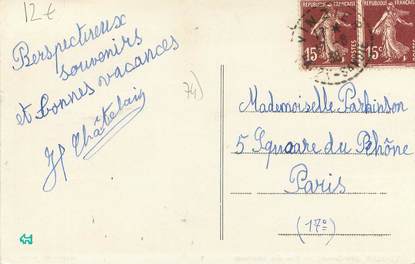 12€
Berspectueux
souvenirs
et bonnes vacances
Châtelain
74)
RÉPUBLIQUE FRANÇAISE
15c POSTES
RÉPUBLIQUE FRANÇAISE
15c
Mademoiselle Parkinson
5 Square du Rhône
Paris
(17e)